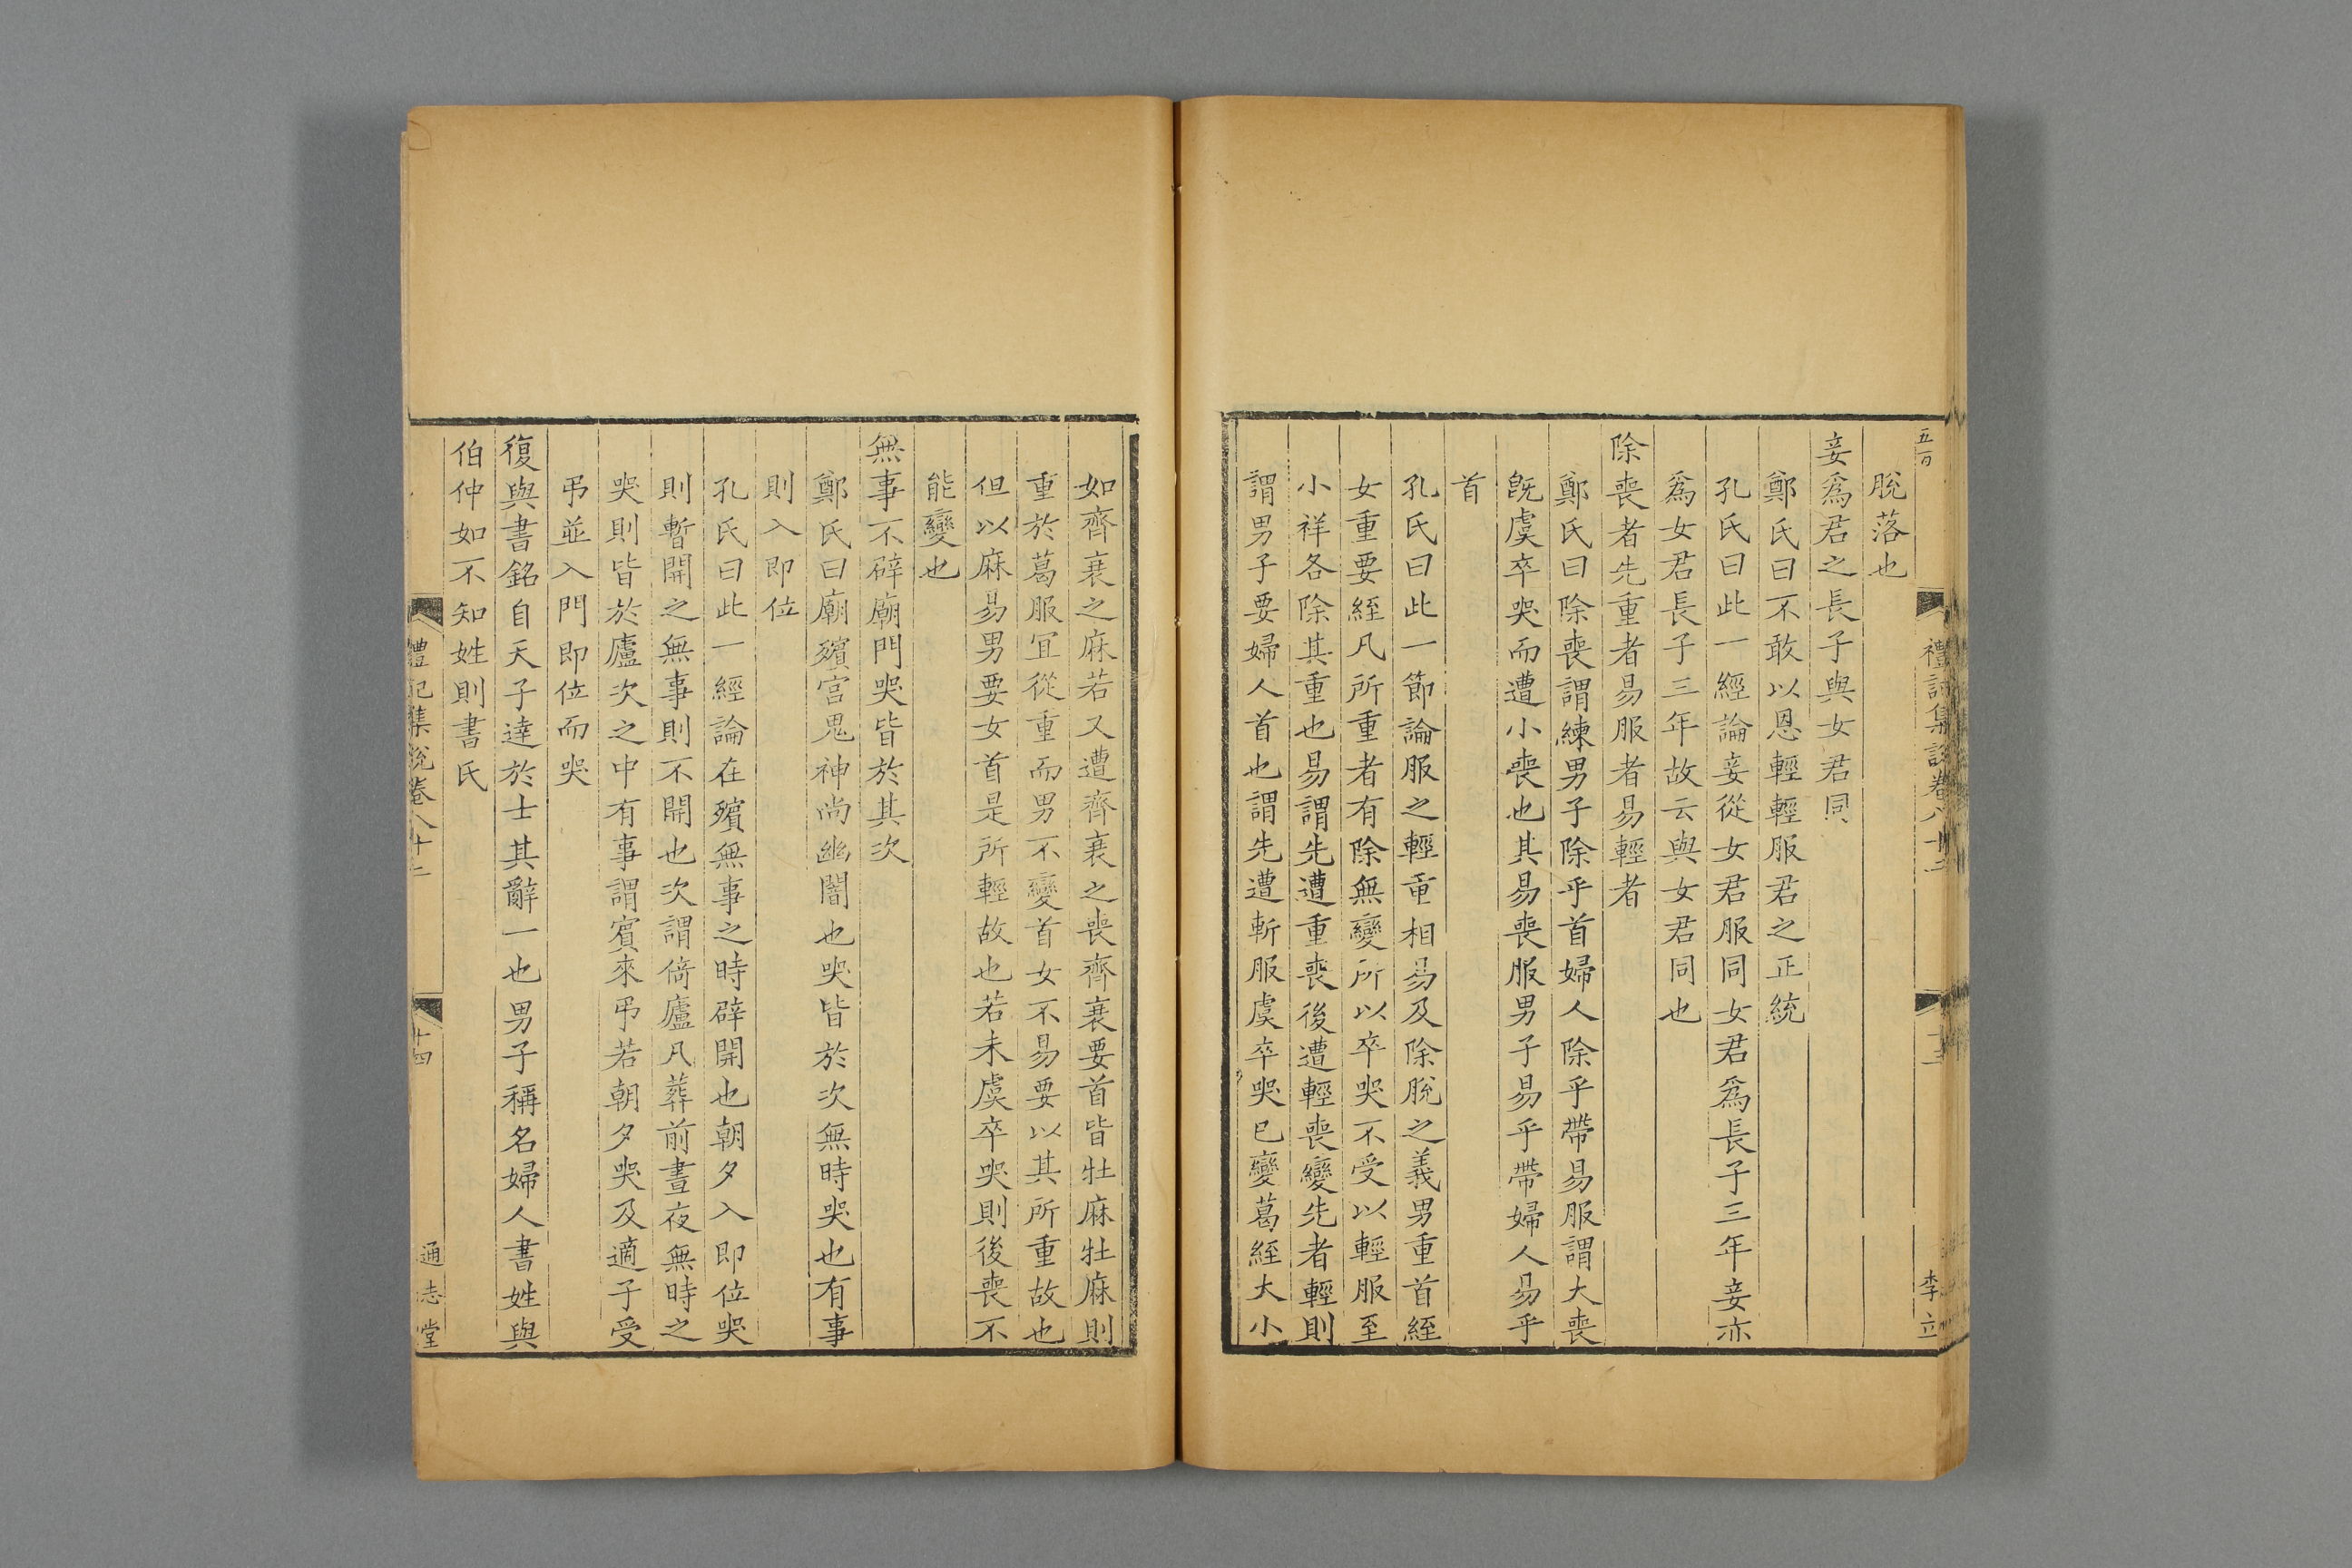 五百
禮記集說卷八十二
李立
脫落也
妾爲君之長子與女君同
鄭氏曰不敢以恩輕輕服君之正統
孔氏曰此一經論妾從女君服同女君爲長子三年妾亦
爲女君長子三年故云與女君同也
除喪者先重者易服者易輕者
鄭氏曰除喪謂練男子除乎首婦人除乎帶易服謂大喪
旣虞卒哭而遭小喪也其易喪服男子易乎帶婦人易乎
首
孔氏曰此一節論服之輕重相易及除脫之義男重首絰
女重要絰凡所重者有除無變所以卒哭不受以輕服至
小祥各除其重也易謂先遭重喪後遭輕喪變先者輕則
謂男子要婦人首也謂先遭斬服虞卒哭已變葛絰大小
如齊衰之麻若又遭齊衰之喪齊衰要首皆牡麻牡麻則
重於葛服宜從重而男不變首女不易要以其所重故也
但以麻易男要女首是所輕故也若未虞卒哭則後喪不
能變也
無事不辟廟門哭皆於其次
鄭氏曰廟殯宮鬼神尚幽闇也哭皆於次無時哭也有事
則入即位
孔氏曰此一經論在殯無事之時辟開也朝夕入即位哭
則暫開之無事則不開也次謂倚廬凡葬前晝夜無時之
哭則皆於廬次之中有事謂賓來弔若朝夕哭及適子受
弔並入門即位而哭
復與書銘自天子達於士其辭一也男子稱名婦人書姓與
伯仲如不知姓則書氏
禮記集說卷八十二
十四
通志堂